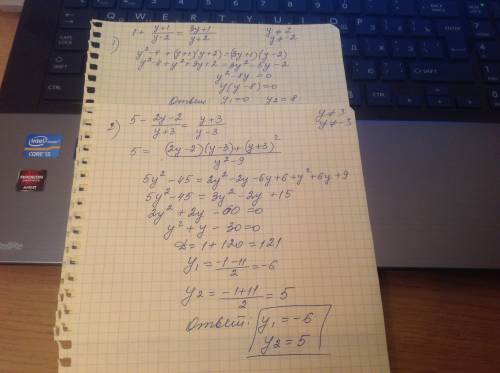 1) 1 + (y+1)/(y-2) = (3y+1)/(y+2)    y≠2
y≠-2
y²-4+(y+1)(y+2)=(3y+1)(y-2)
y²-4+y²+3y+2=3y²-5y-2
y²-8y=0
y(y-8)=0
Ответ: y₁=0 y₂=8
2) 5 - (2y-2)/(y+3) = (y+3)/(y-3)    y≠3
y≠-3
5 = ((2y-2)(y-3)+(y+3)²)/(y²-9)
5y²-45=2y²-2y-6y+6+y²+6y+9
5y²-45=3y²-2y+15
2y²+2y-60=0
y²+y-30=0
D=1+120=121
y₁=(-1-11)/2=-6
y₂=(-1+11)/2=5
Ответ: y₁=-6
y₂=5
intel inside
CORE i5
RADEON
GRAPHICS
AMD